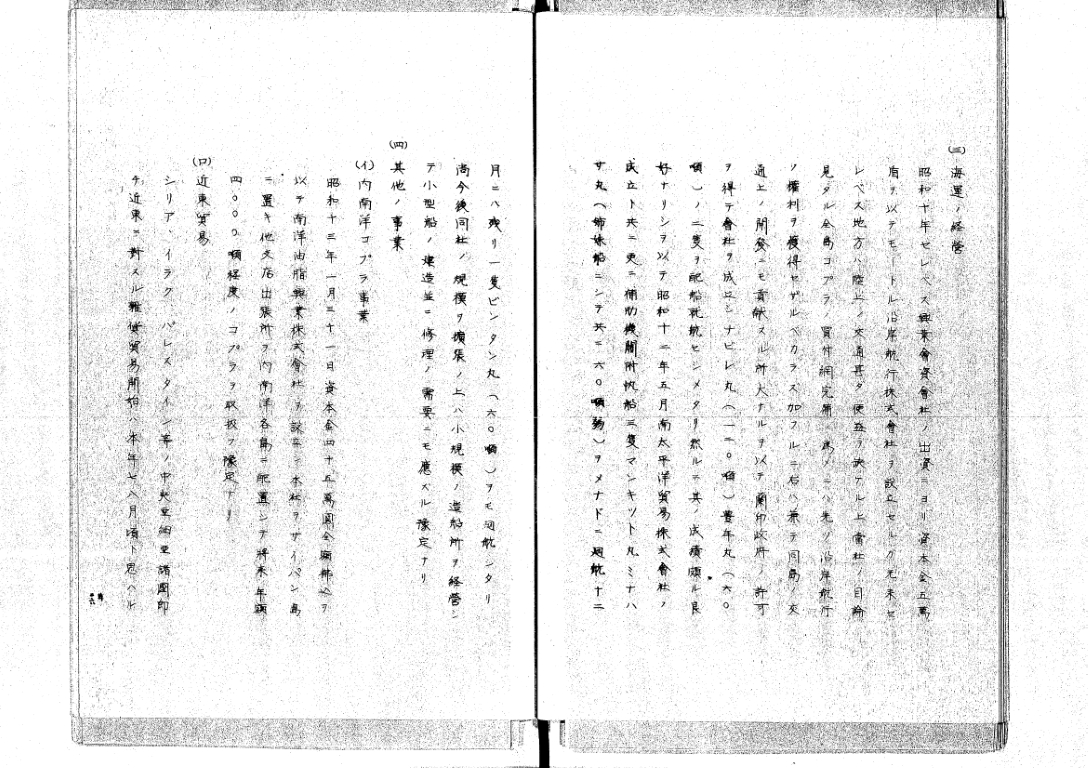 (三) 海運ノ經營
昭和十年セレベス興業會資會社ノ出資ニヨリ資本金五萬
盾ヲ以テモートル沿岸航行株式會社ヲ設立セルガ元来セ
レベス地方ハ陸上ノ交通甚ダ便益ヲ缺ケル上當社ノ目論
見タル全島コプラノ買付網完備ノ為メニハ先ヅ沿岸航行
ノ權利ヲ獲得セザルベカラス加フルニ右ハ兼テ同島ノ交
通上ノ開發ニモ貢献スル所大ナルヲ以テ蘭印政府ノ許可
ヲ得テ會社ヲ成立シナビレ丸(一二〇噸)豊年丸(六〇
噸)ノ二隻ヲ配船就航セシメタリ然ルニ其ノ成績頗ル良
好ナリシヲ以テ昭和十二年五月南太平洋貿易株式會社ノ
成立ト共ニ更ニ補助機關附帆船三隻マンキツト丸ミナハ
サ丸(姉妹船ニシテ共ニ六〇噸)ヲメナドニ廻航十二
月ニハ残リ一隻ビンタン丸(六〇噸)ヲモ廻航シタリ
尚今後同社ノ規模ヲ擴張ノ上ハ小規模ノ造船所ヲ経營シ
テ小型船ノ建造並ニ修理ノ需要ニモ應スル豫定ナリ
(四) 其他ノ事業
(イ) 内南洋コプラ事業
昭和十三年一月三十一日資本金四十五萬圓全額拂込ヲ
以テ南洋油脂興業株式會社ヲ設立シ本社ヲサイパン島
ニ置キ他支店出張所ヲ内南洋各島ニ配置シテ將来年額
四〇〇〇噸程度ノコプラヲ取扱フ豫定ナリ
(ロ) 近東貿易
シリア、イラク、パレスタイン等ノ中央亞細亞諸國即
チ近東ニ對スル雜貨貿易開始ハ本年七八月頃ト思ハル